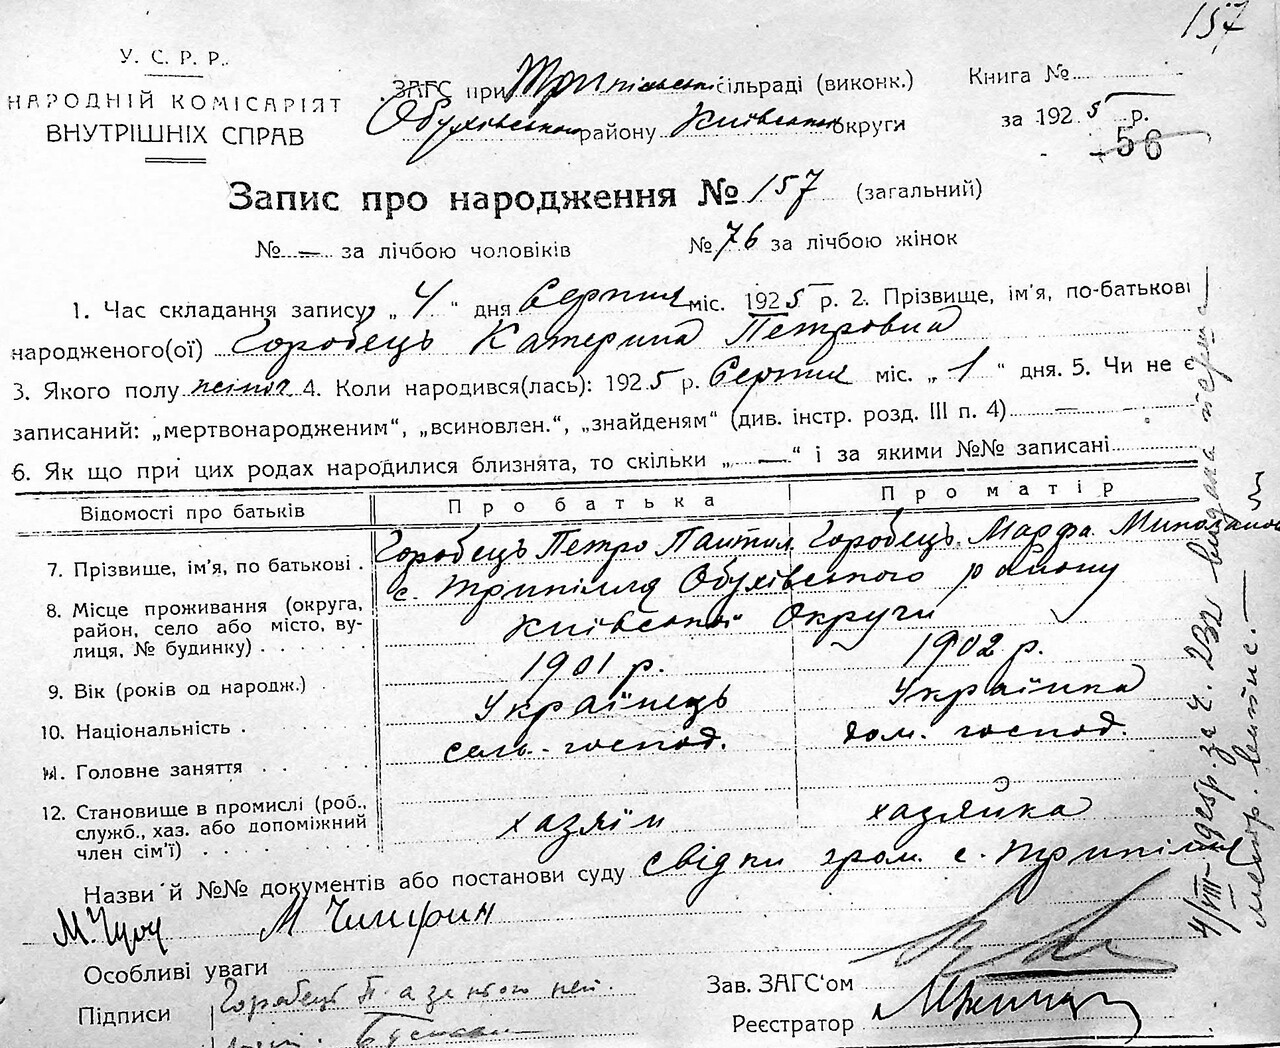 157
У. С. Р. Р.
НАРОДНІЙ КОМІСАРІЯТ
ВНУТРІШНІХ СПРАВ
ЗАГС при Трипільській сільраді (виконк.)
Обухівського району Київської округи
Книга №
за 1925 р.
56
Запис про народження № 157 (загальний)
№ — за лічбою чоловіків № 76 за лічбою жінок
1. Час складання запису „ 4 “ дня Серпня міс. 1925 р. 2. Прізвище, ім’я, по-батькові
народженого(ої) Горобець Катерина Петровна
3. Якого полу жіноч 4. Коли народився(лась): 1925 р. Серпня міс. „ 1 “ дня. 5. Чи не є
записаний: „мертвонародженим“, „всиновлен.“, „знайденям“ (див. інстр. розд. III п. 4) —
6. Як що при цих родах народилися близнята, то скільки „ — “ і за якими №№ записані
Відомості про батьків Про батька Про матір
7. Прізвище, ім’я, по батькові . Горобець Петро Горобець Марфа
8. Місце проживання (округа, район, село або місто, ву-
лиця, № будинку) с. Трипілля Обухівського району
Київської Округи
9. Вік (років од народж.) 1901 р. 1902 р.
10. Національність . Українець Українка
11. Головне заняття сель. господ. дом. господ.
12. Становище в промислі (роб.,
служб., хаз. або допоміжний
член сім’ї) хазяїн хазяйка
Назви й №№ документів або постанови суду свідки гром. с. Трипілля
М.
Особливі уваги
Підписи Горобець П. а за него
Зав. ЗАГС‘ом
Реєстратор
4/VIII за ч. 232 видана